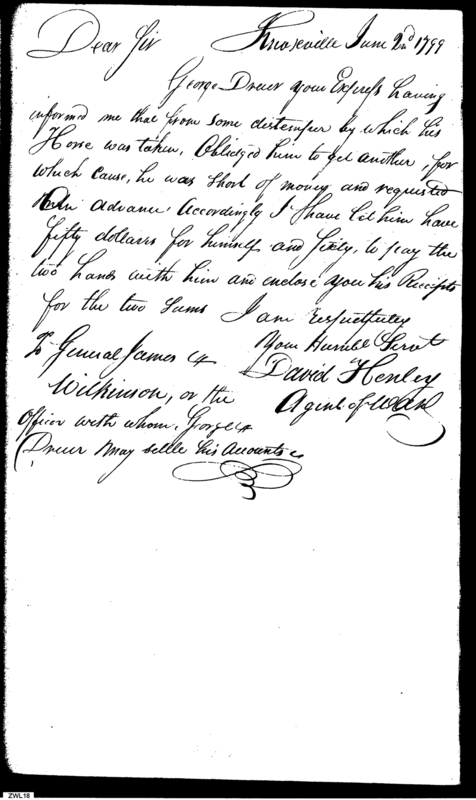 Dear Sir Knoxville June 2nd 1799
George Drewr your Express having
informed me that from some distemper by which his
Horse was taken, Obliedged him to get another, for
which cause, he was short of money and requested
an advance. Accordingly I have let him have
fifty dollars for himself and sixty, to pay the
two hands with him and enclose you his Receipts
for the two sums I am respectfully
Your Humble Servt
To General James David Henley
Wilkinson, or the Agent of War
Officer with whom, George
Drewr may settle his Accounts
ZWL18